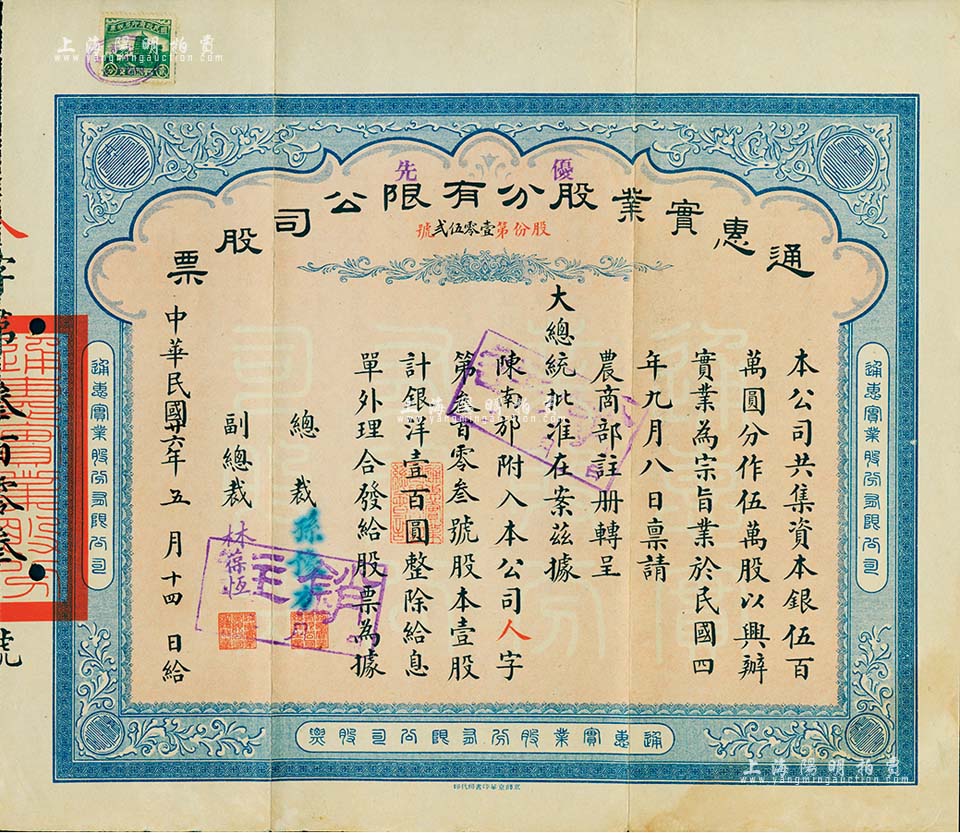 上海陽明拍賣
www.yangmingauction.com
優先
通惠實業股分有限公司股票
股份第壹零伍弍號
本公司共集資本銀伍百
萬圓分作伍萬股以興辦
實業為宗旨業於民國四
年九月八日禀請
農商部註册轉呈
大總統批准在案茲據
陳南邠附入本公司人字
第叁百零叁號股本壹股
計銀洋壹百圓整除給息
單外理合發給股票為據
總裁
副總裁 林葆恒
中華民國六年五月十四日給
註銷
通惠實業股份有限公司
通惠實業股份有限公司
通惠實業股份有限公司股票
字第叁百零叁號
上海陽明拍賣
www.yangmingauction.com
上海陽明拍賣
www.yangmingauction.com